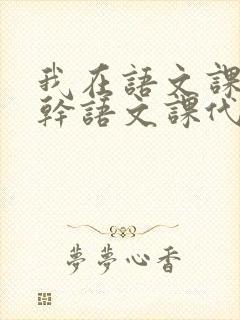 我在語文課
幹語文課代
夢夢心香